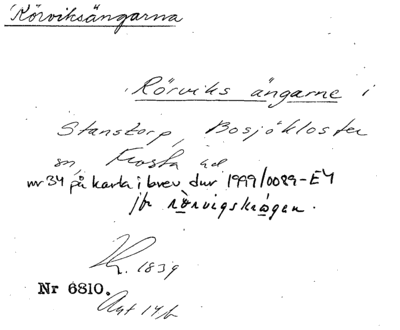 Rörviksängarna
Rörviks ängarne i
Stanstorp, Bosjökloster
sn, Frosta hd
nr 34 på karta i brev dnr 1999/0089-E4
jfr rörvigskrògen.
1839
Nr 6810.